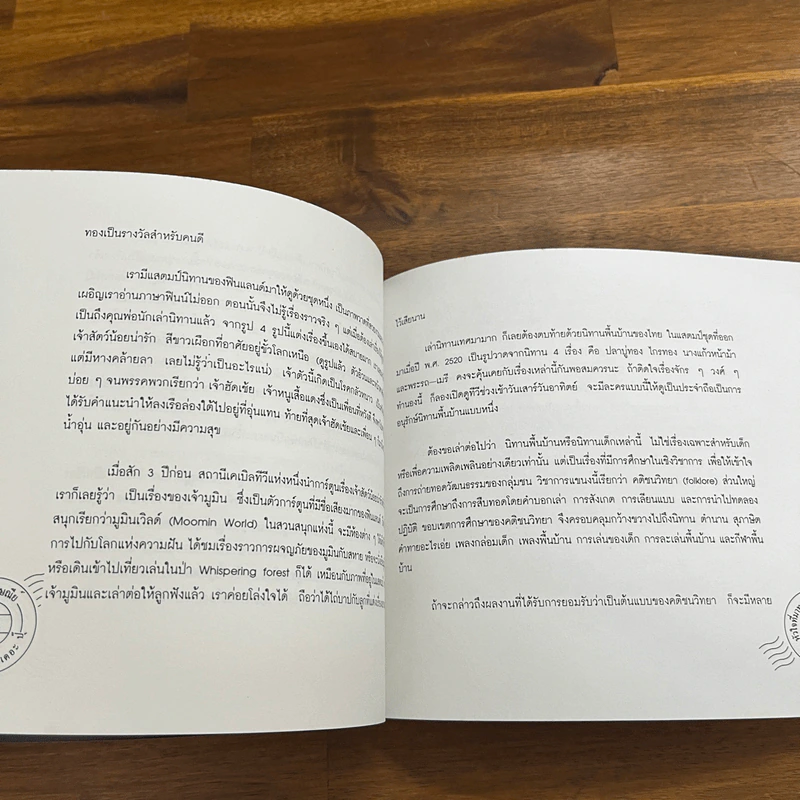 ทองเป็นรางวัลสำหรับคนดี
เรามีแสตมป์นิทานของฟินแลนด์มาให้ดูด้วยชุดหนึ่ง เป็นภาพวาด
เผอิญเราอ่านภาษาฟินน์ไม่ออก ตอนนั้นจึงไม่รู้เรื่องราวจริง ๆ แต่เมื่อต้อง
เป็นถึงคุณพ่อนักเล่านิทานแล้ว จากรูป 4 รูปนี้แต่งเรื่องขึ้นเองได้สบายมาก
เจ้าสัตว์น้อยน่ารัก สีขาวเผือกที่อาศัยอยู่ขั้วโลกเหนือ (ดูรูปแล้ว ตัวอ้วน
แต่มีหางคล้ายลา เลยไม่รู้ว่าเป็นอะไรแน่) เจ้าตัวนี้เกิดเป็นโรคกลัวหนาว
บ่อย ๆ จนพรรคพวกเรียกว่า เจ้าฮัดเช้ย เจ้าหนูเสื้อแดงซึ่งเป็นเพื่อนที่หวังดี
ได้รับคำแนะนำให้ลงเรือล่องใต้ไปอยู่ที่อุ่นแทน ท้ายที่สุดเจ้าฮัดเช้ยและเพื่อน ๆ
น้ำอุ่น และอยู่กันอย่างมีความสุข
เมื่อสัก 3 ปีก่อน สถานีเคเบิลทีวีแห่งหนึ่งนำการ์ตูนเรื่องเจ้าสัตว์
เราก็เลยรู้ว่า เป็นเรื่องของเจ้ามูมิน ซึ่งเป็นตัวการ์ตูนที่มีชื่อเสียงมากของฟินแลนด์
สนุกเรียกว่ามูมินเวิลด์ (Moomin World) ในสวนสนุกแห่งนี้ จะมีห้องต่าง ๆ
การไปกับโลกแห่งความฝัน ได้ชมเรื่องราวการผจญภัยของมูมินกับสหาย หรือจะ
หรือเดินเข้าไปเที่ยวเล่นในป่า Whispering forest ก็ได้ เหมือนกับภาพที่อยู่
เจ้ามูมินและเล่าต่อให้ลูกฟังแล้ว เราค่อยโล่งใจได้ ถือว่าได้ไถ่บาปกับลูกที่
ไว้เสียนาน
เล่านิทานเทศมามาก ก็เลยต้องตบท้ายด้วยนิทานพื้นบ้านของไทย ในแสตมป์ชุดที่ออก
มาเมื่อปี พ.ศ. 2520 เป็นรูปวาดจากนิทาน 4 เรื่อง คือ ปลาบู่ทอง ไกรทอง นางแก้วหน้าม้า
และพระรถ-เมรี คงจะคุ้นเคยกับเรื่องเหล่านี้กันพอสมควรนะ ถ้าติดใจเรื่องจักร ๆ วงศ์ ๆ
ทำนองนี้ ก็ลองเปิดดูทีวีช่วงเช้าวันเสาร์วันอาทิตย์ จะมีละครแบบนี้ให้ดูเป็นประจำถือเป็นการ
อนุรักษ์นิทานพื้นบ้านแบบหนึ่ง
ต้องขอเล่าต่อไปว่า นิทานพื้นบ้านหรือนิทานเด็กเหล่านี้ ไม่ใช่เรื่องเฉพาะสำหรับเด็ก
หรือเพื่อความเพลิดเพลินอย่างเดียวเท่านั้น แต่เป็นเรื่องที่มีการศึกษาในเชิงวิชาการ เพื่อให้เข้าใจ
ถึงการถ่ายทอดวัฒนธรรมของกลุ่มชน วิชาการแขนงนี้เรียกว่า คติชนวิทยา (folklore) ส่วนใหญ่
จะเป็นการศึกษาถึงการสืบทอดโดยคำบอกเล่า การสังเกต การเลียนแบบ และการนำไปทดลอง
ปฏิบัติ ขอบเขตการศึกษาของคติชนวิทยา จึงครอบคลุมกว้างขวางไปถึงนิทาน ตำนาน สุภาษิต
คำทายอะไรเอ่ย เพลงกล่อมเด็ก เพลงพื้นบ้าน การเล่นของเด็ก การละเล่นพื้นบ้าน และกีฬาพื้น
บ้าน
ถ้าจะกล่าวถึงผลงานที่ได้รับการยอมรับว่าเป็นต้นแบบของคติชนวิทยา ก็จะมีหลาย